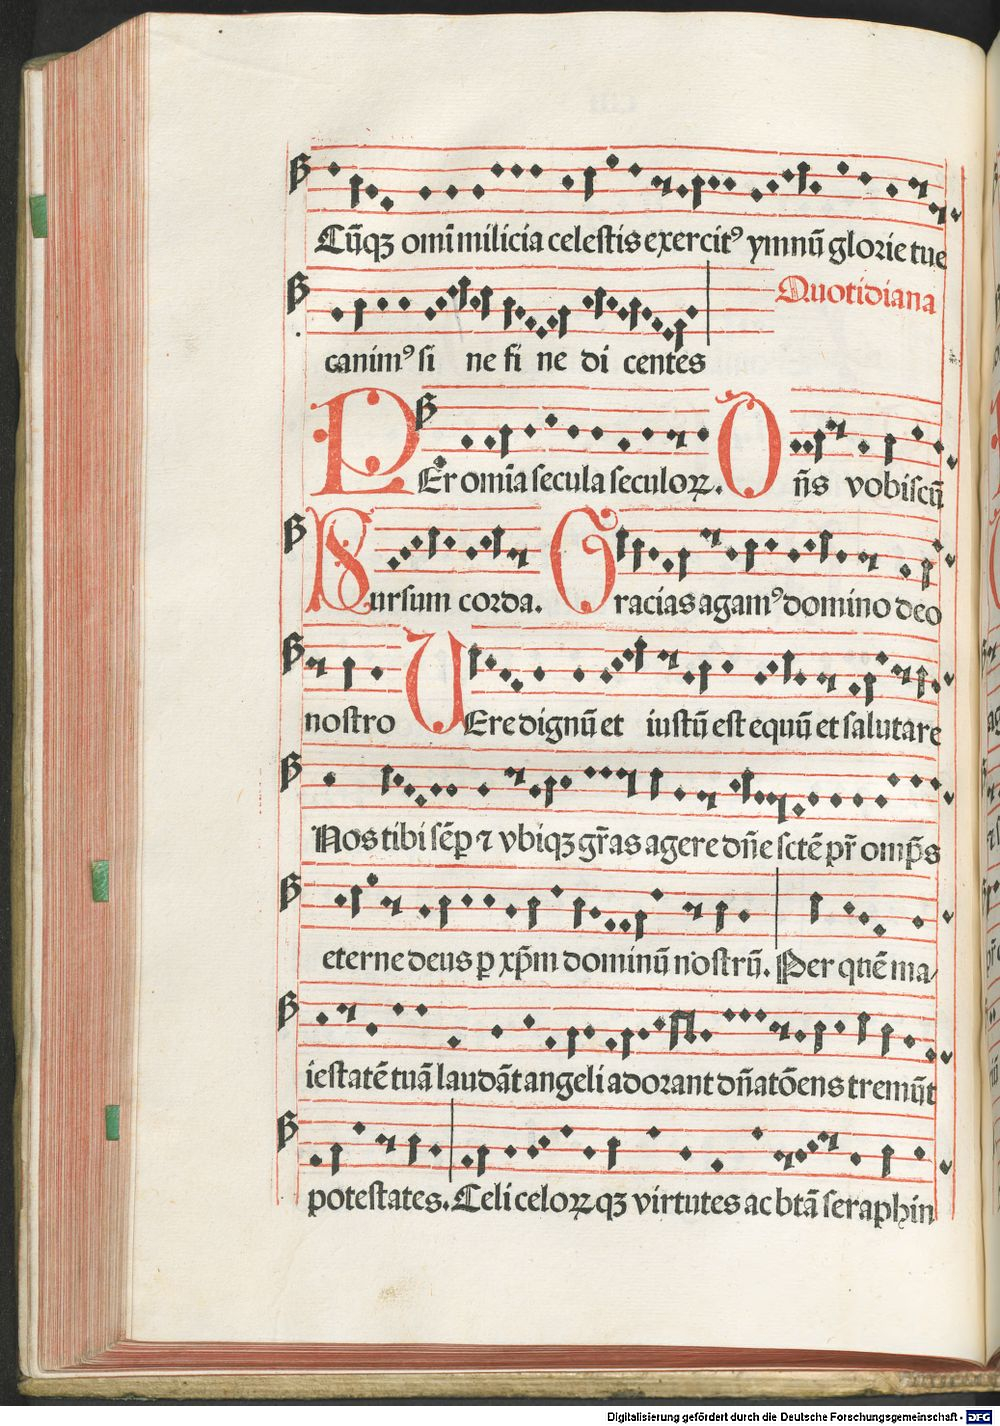 Cūqꝫ omī milicia celestis exercitꝰ ymnū glorie tue
Quotidiana
canimꝰ si ne fi ne di centes
PEr omīa secula seculoꝝ. Dn̄s vobiscū
Sursum corda. Gracias agamꝰ domino deo
nostro VEre dignū et iustū est equū et salutare
Nos tibi sēp ⁊ vbiqꝫ gr̄as agere dn̄e sctē pr̄ omp̄s
eterne deus ꝑ xp̄m dominū nostrū. Per quē ma/
iestatē tuā laudāt angeli adorant dn̄atōens tremūt
potestates. Celi celoꝝqꝫ virtutes ac btā seraphin
Digitalisierung gefördert durch die Deutsche Forschungsgemeinschaft - DFG